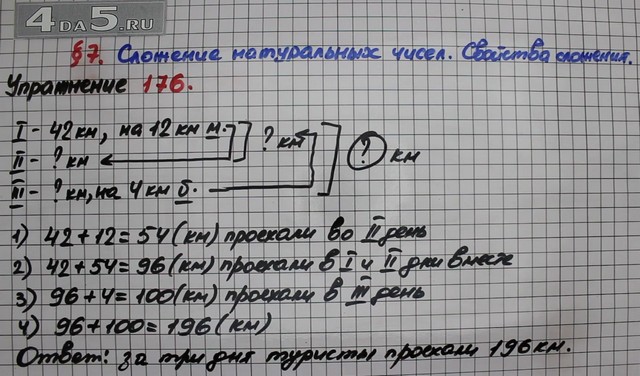 4ДА5.RU
§7. Сложение натуральных чисел. Свойства сложения.
Упражнение 176.
I - 42 км, на 12 км м. ? км
II - ? км ? км
III - ? км, на 4 км б.
1) 42 + 12 = 54 (км) проехали во II день
2) 42 + 54 = 96 (км) проехали в I и II дни вместе
3) 96 + 4 = 100 (км) проехали в III день
4) 96 + 100 = 196 (км)
Ответ: за три дня туристы проехали 196 км.